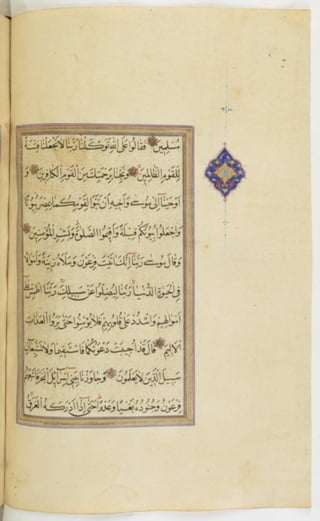 مسلمين فقالوا على الله توكلنا ربنا لا تجعلنا فتنة
للقوم الظالمين ونجنا برحمتك من القوم الكافرين و
اوحينا الى موسى واخيه ان تبوا لقومكما بمصر بيوتا
واجعلوا بيوتكم قبلة واقيموا الصلوة وبشر المؤمنين
وقال موسى ربنا انك اتيت فرعون وملاه زينة واموالا
في الحيوة الدنيا ربنا ليضلوا عن سبيلك ربنا اطمس على
اموالهم واشدد على قلوبهم فلا يؤمنوا حتى يروا العذاب
الاليم قال قد اجيبت دعوتكما فاستقيما ولا تتبعان
سبيل الذين لا يعلمون وجاوزنا ببني اسرائيل البحر فاتبعهم
فرعون وجنوده بغيا وعدوا حتى اذا ادركه الغرق